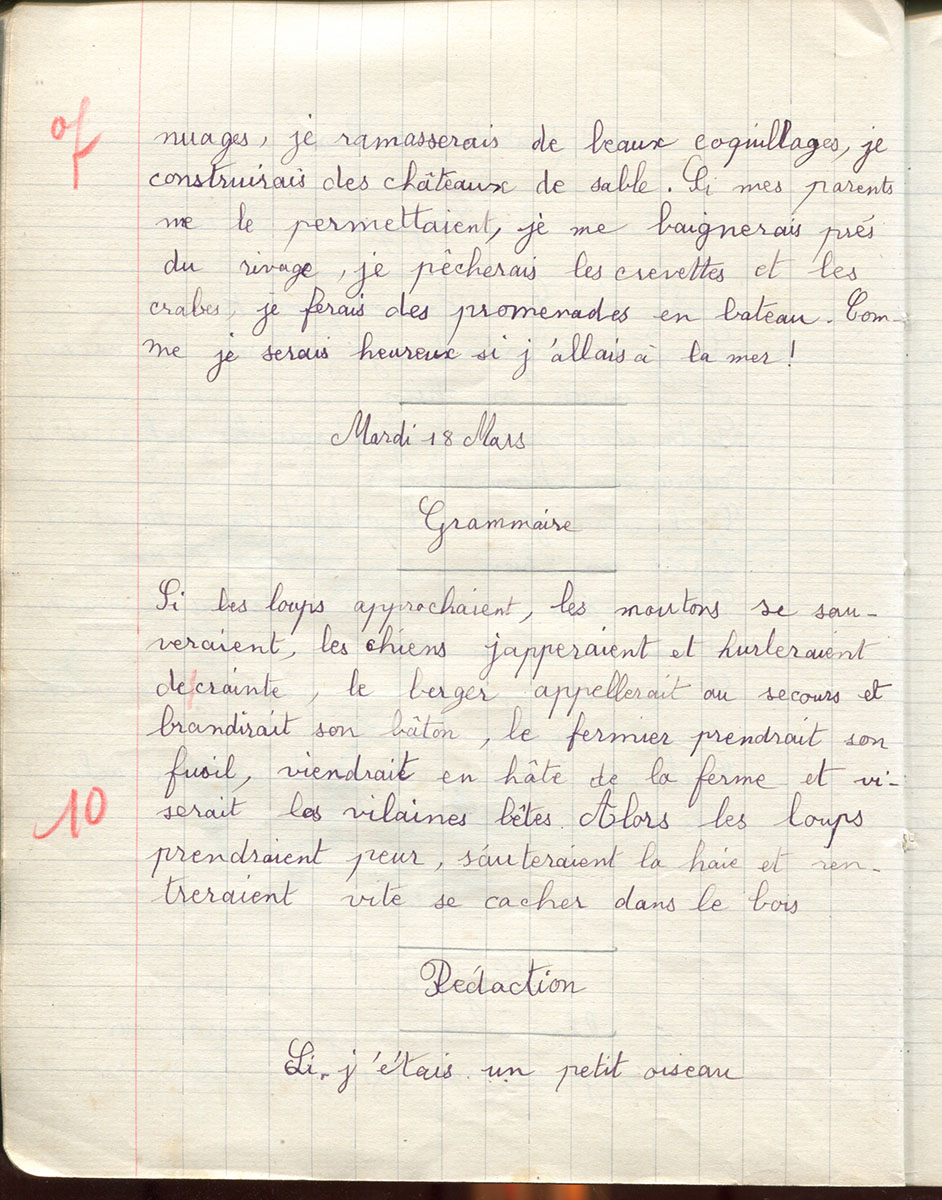 of nuages, je ramasserais de beaux coquillages, je
construirais des châteaux de sable. Si mes parents
me le permettaient, je me baignerais prés
du rivage, je pêcherais les crevettes et les
crabes, je ferais des promenades en bateau. Com-
me je serais heureux si j'allais à la mer !
Mardi 18 Mars
Grammaire
Si les loups approchaient, les moutons se sau-
veraient, les chiens japperaient et hurleraient
de crainte, le berger appellerait au secours et
brandirait son bâton, le fermier prendrait son
fusil, viendrait en hâte de la ferme et vi-
10 serait les vilaines bêtes. Alors les loups
prendraient peur, sauteraient la haie et ren-
treraient vite se cacher dans le bois
Rédaction
Si j'étais un petit oiseau